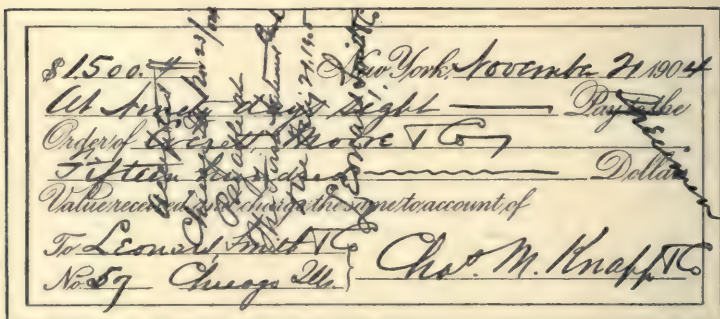 $1500.00 New York, November 21 1904
At Ninety days sight — Pay to the
Order of Everett, Moore & Co
Fifteen hundred Dollars
Value received and charge the same to account of
To Leonard, Smith & Co
No. 57 Chicago Ills.
Chas. M. Knapp & Co
Accepted
Chicago Nov 23/04
Payable at
1905
Leonard Smith & Co
Specimen